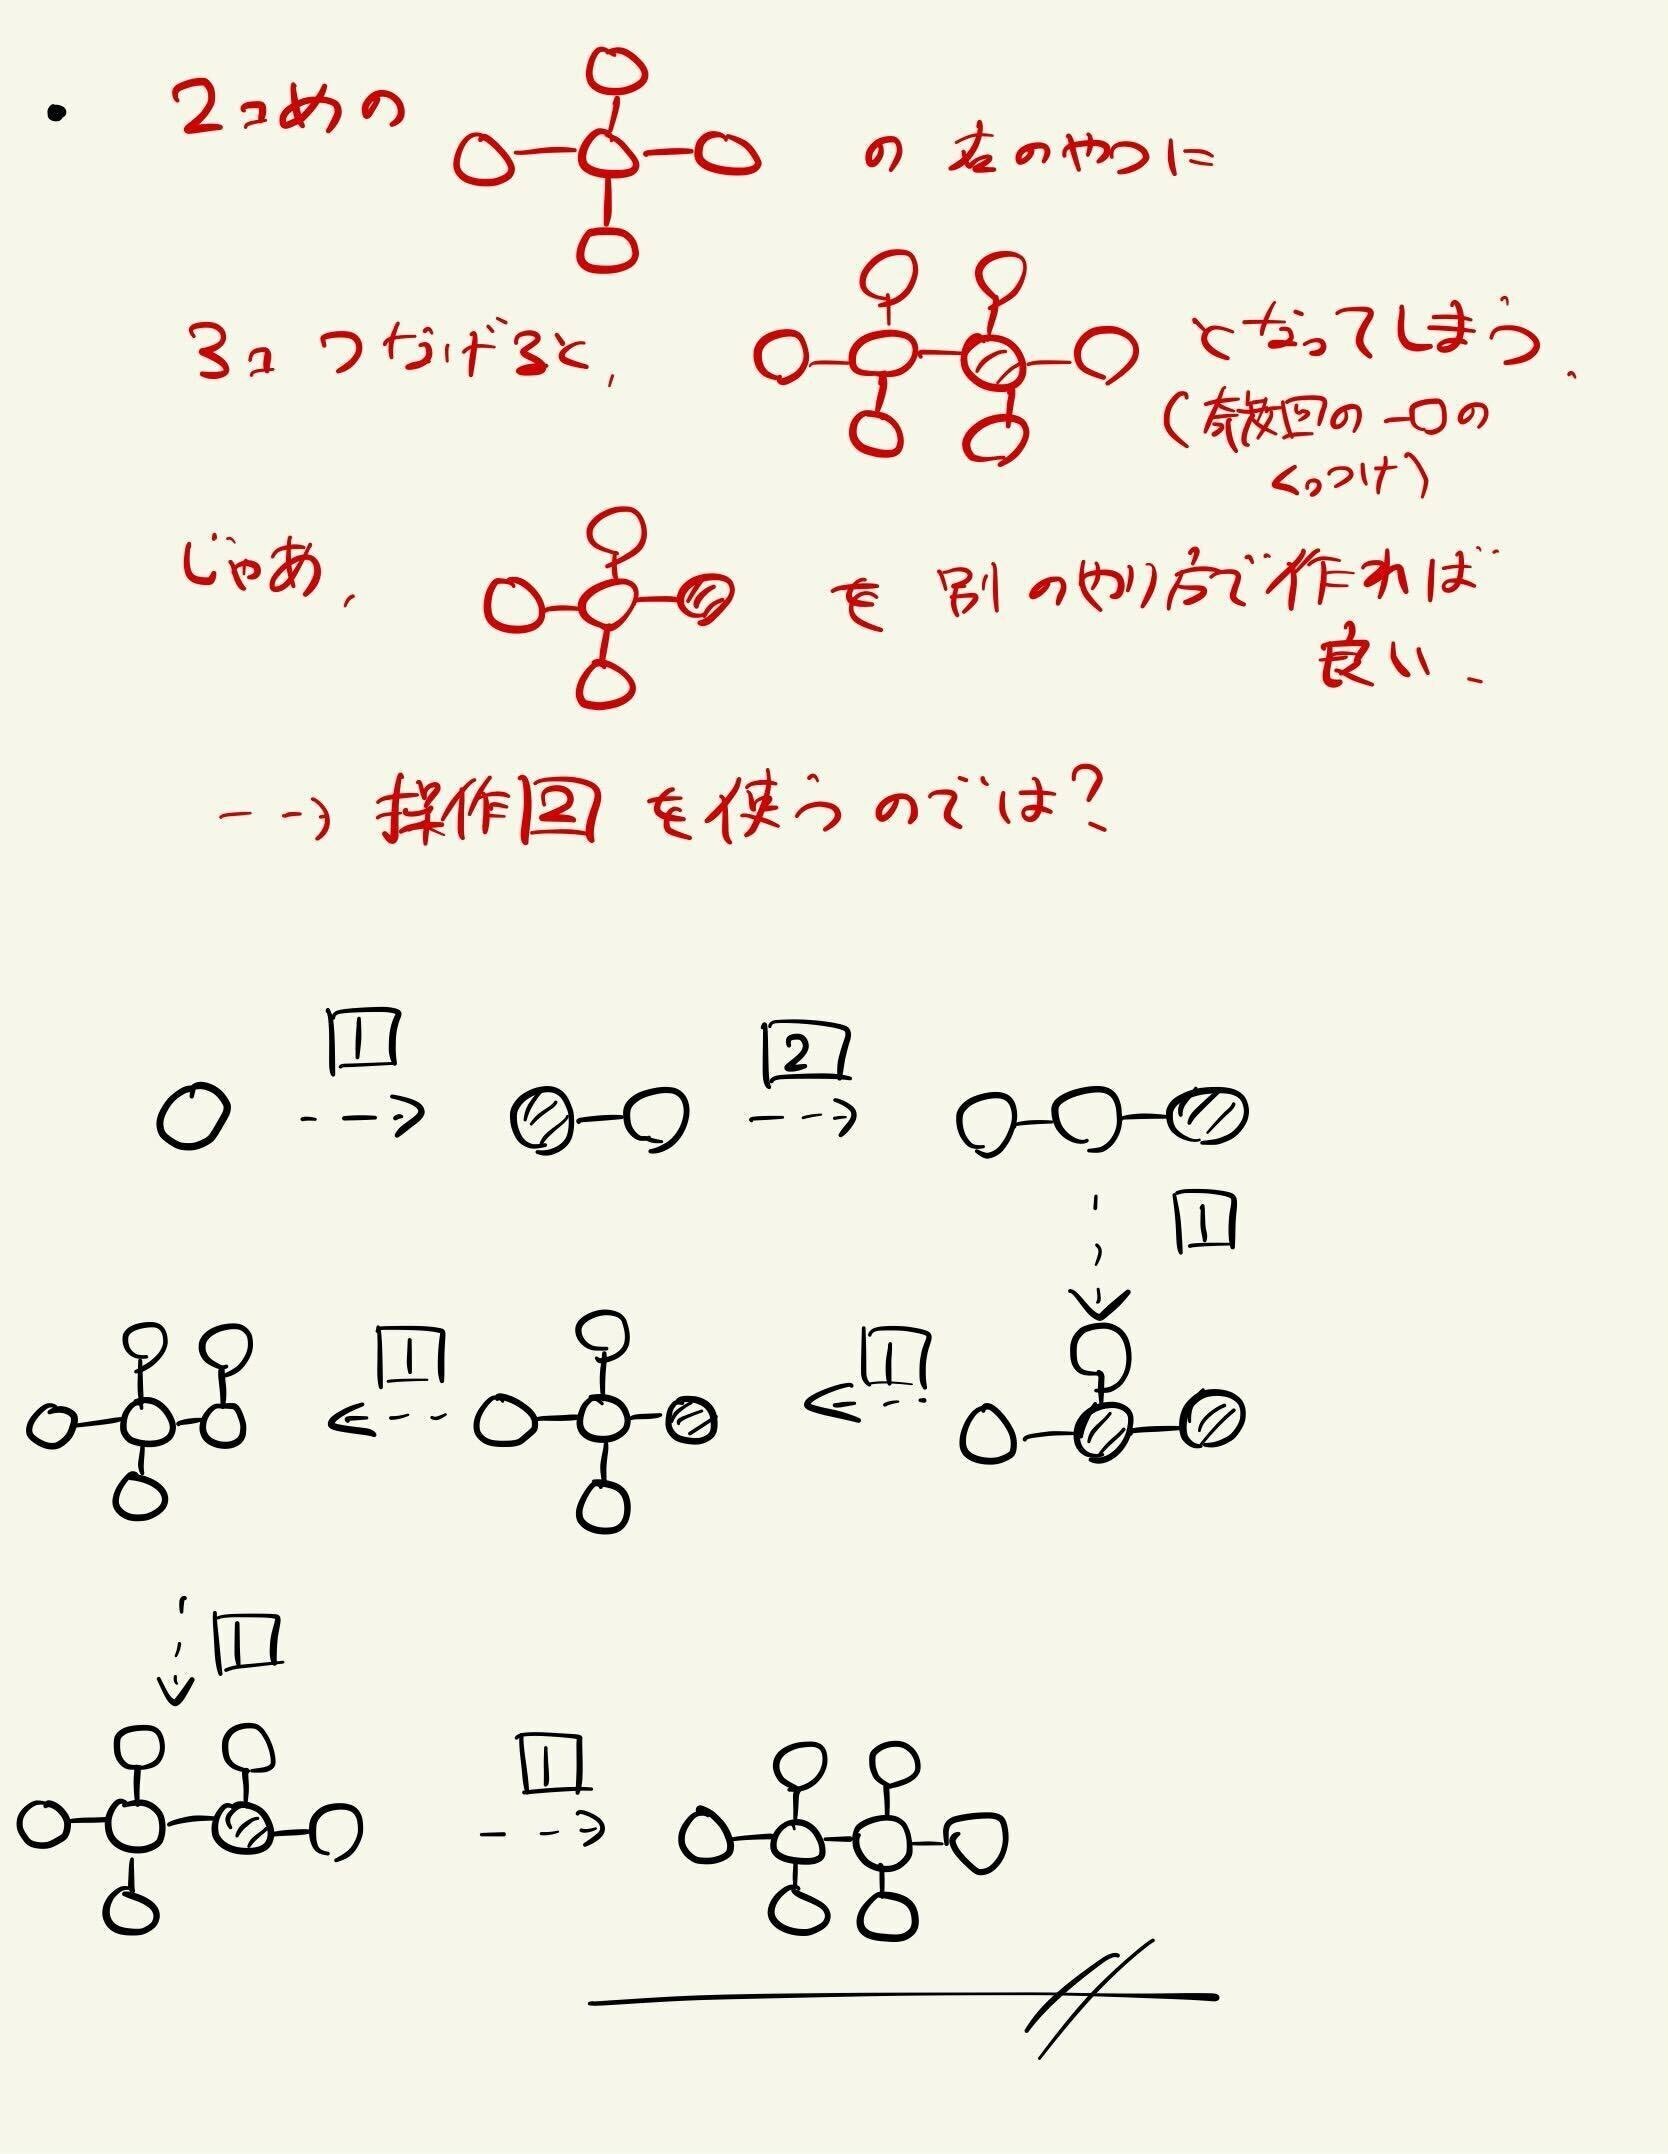 ・ 2コめの の右のやつに
3コ つなげると、 となってしまう、
(奇数回の -○の
くっつけ)
じゃあ、 を 別のやり方で作れば
良い、
--→ 操作2 を使うのでは?
1 2
1
1 1
1
1